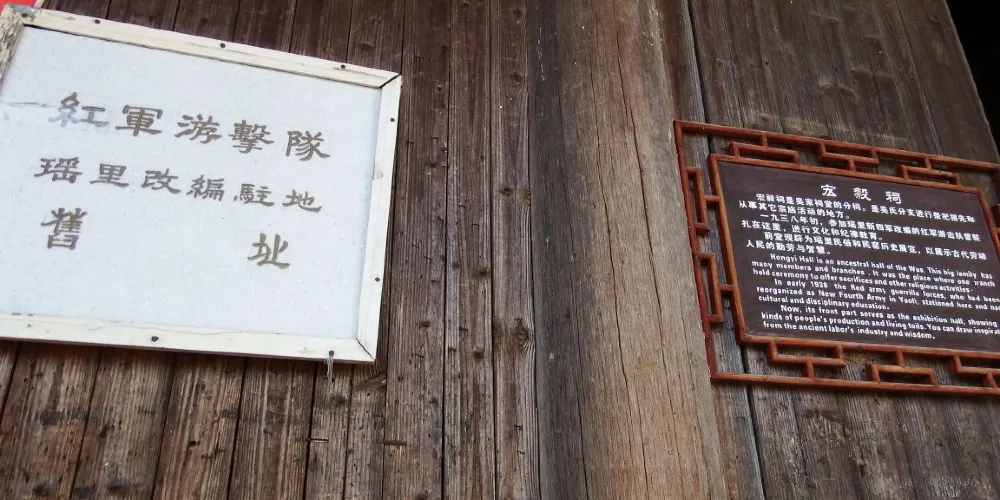 紅軍游擊隊
瑶里改編駐地
舊址
宏毅祠
宏毅祠是吴家祠堂的分祠。是吴氏分支进行祭祀祖先和
从事其它宗族活动的地方。
一九三八年初，参加瑶里新四军改编的红军游击队曾驻
扎在这里，进行文化和纪律教育。
前堂现辟为瑶里民俗和民窑历史展览，以展示古代劳动
人民的勤劳与智慧。
Hongyi Hall is an ancestral hall of the Wus. This big iamily has
many members and branches . It was the place where one branch
held ceremony to offer sacrifices and other religious activities.
In early 1938 the Red army guerrilla forces, who had been
reorganized as New Fourth Army in Yaoli, stationed here and had
cultural and disciplinary education.
Now, its front part serves as the exhibition hall, showing
kinds of people's production and living toils. You can draw
from the ancient labor's industry and wisdom.